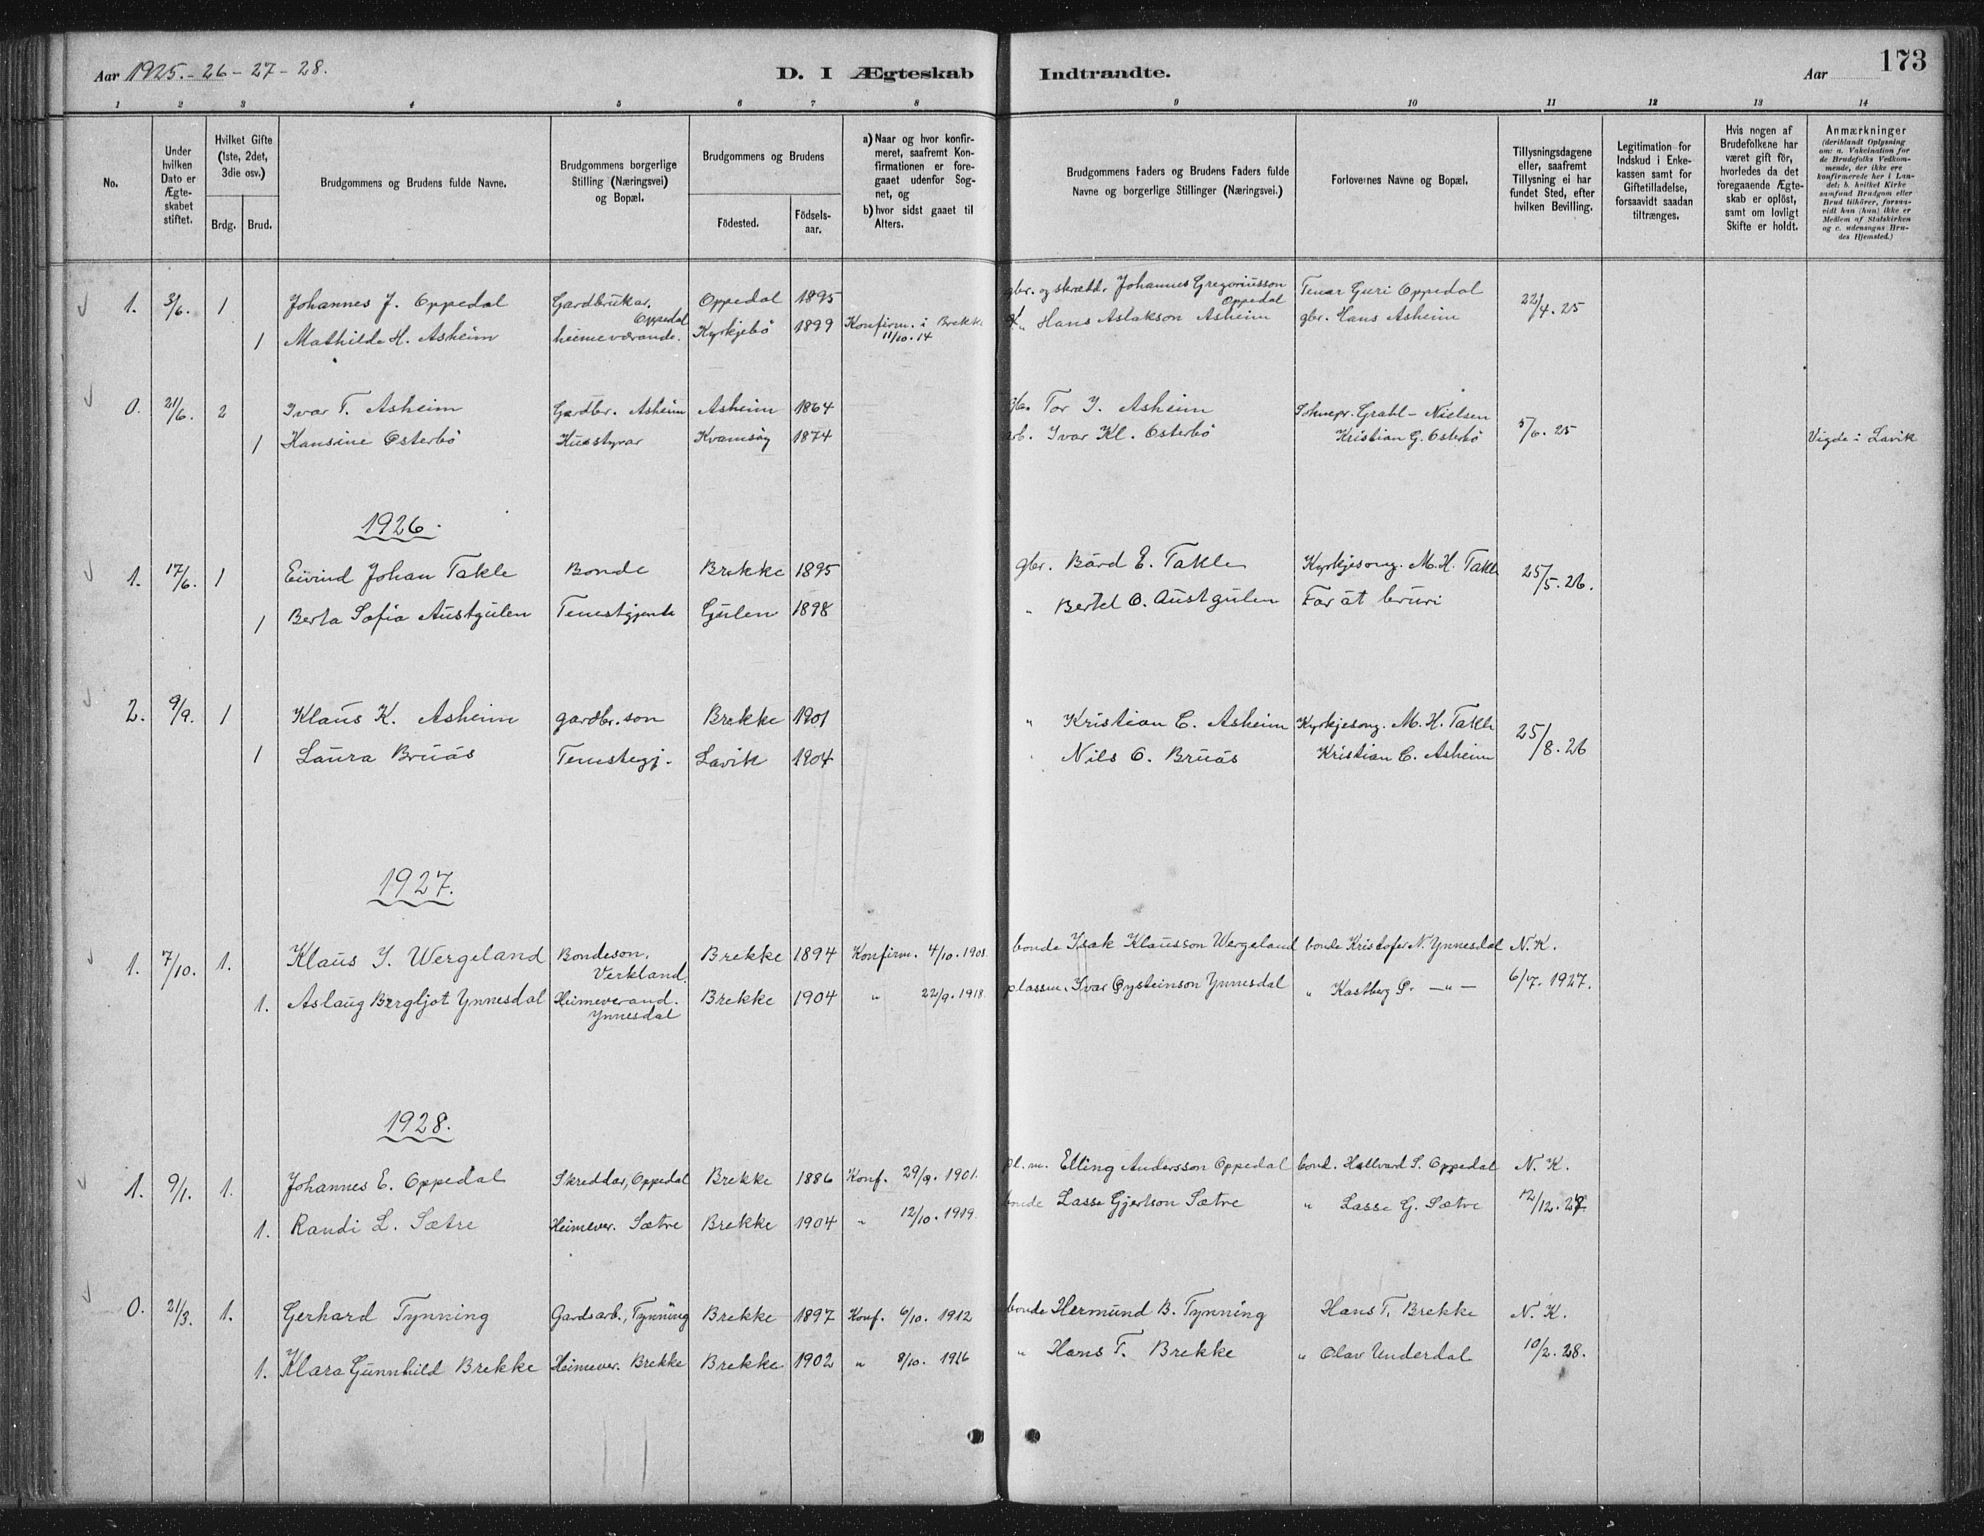 Aar 1925.-26-27-28.
D. I Ægteskab Indtrandte.
Aar 173
1 2 3 4 5 6 7 8 9 10 11 12 13 14
No.
Under hvilken Dato er Ægteskabet stiftet.
Hvilket Gifte (1ste, 2det, 3die osv.)
Brdg. Brud.
Brudgommens og Brudens fulde Navne.
Brudgommens borgerlige Stilling (Næringsvei) og Bopæl.
Brudgommens og Brudens
Födested. Födselsaar.
a) Naar og hvor konfirmeret, saafremt Konfirmationen er foregaaet udenfor Sognet, og
b) hvor sidst gaaet til Alters.
Brudgommens Faders og Brudens Faders fulde Navne og borgerlige Stillinger (Næringsvei.)
Forlovernes Navne og Bopæl.
Tillysningsdagene eller, saafremt Tillysning ei har fundet Sted, efter hvilken Bevilling.
Legitimation for Indskud i Enkekassen samt for Giftetilladelse, forsaavidt saadan tiltrænges.
Hvis nogen af Brudefolkene har været gift för, hvorledes da det foregaaende Ægteskab er oplöst, samt om lovligt Skifte er holdt.
Anmærkninger (deriblandt Oplysning om: a. Vakcination for de Brudefolks Vedkommende, der ikke ere konfirmerede her i Landet; b. hvilket Kirkesamfund Brudgom eller Brud tilhörer, forsaavidt han (hun) ikke er Medlem af Statskirken og c. udensogns Brudes Hjemsted.)
1. 3/6. 1 Johannes J. Oppedal Gardbrukar, Oppedal Oppedal 1895 gbr. og skrædd. Johannes Gregoriusson Oppedal Tenar Guri Oppedal 22/4. 25
1 Mathilde H. Asheim heimeværande. Kyrkjebö 1899 Konfirm. i Brekke 11/10. 14 Hans Aslakson Asheim gbr. Hans Asheim
0. 21/6. 2 Ivar T. Asheim Gardbr. Asheim Asheim 1864 Tor I. Asheim Soknepr. Grahl-Nielsen 5/6. 25
1 Hansine Osterbö Husstyrar Kvamsöy 1874 arb. Ivar Kl. Osterbö Kristian G. Osterbö Vigde i Lavik
1926.
1. 17/6. 1 Eivind Johan Takle Bonde Brekke 1895 gbr. Bård E. Takle Kyrkjesong. M. H. Takle 25/5. 26.
1 Berta Sofia Austgulen Tenestgjente Gulen 1898 " Bertel O. Austgulen Far åt bruri
2. 9/9. 1 Klaus K. Asheim gardbr. son Brekke 1901 " Kristian C. Asheim Kyrkjesong. M. H. Takle 25/8. 26
1 Laura Bruås Tenestegj. Lavik 1904 Nils O. Bruås Kristian C. Asheim
1927.
1. 7/10. 1. Klaus I. Wergeland Bondeson, Verkland Brekke 1894 Konfirm. 4/10. 1908 bonde Isak Klausson Wergeland bonde Kristofer N. Ynnesdal N. K.
1. Aslaug Bergljot Ynnesdal Heimeverand. Ynnesdal Brekke 1904 " 22/9. 1918. plassm. Ivar Oysteinson Ynnesdal " Kastberg P. — " — 6/7. 1927.
1928.
1. 9/1. 1. Johannes E. Oppedal Skreddar, Oppedal Brekke 1886 Konf. 29/9. 1901. pl. m. Elling Andersson Oppedal bond. Hallvard S. Oppedal N. K.
1. Randi L. Sætre Heimever. Sætre Brekke 1904 " 12/10. 1919. bonde Lasse Gjertson Sætre " Lasse G. Sætre 12/12. 27
0. 21/3. 1. Gerhard Tynning Gardsarb., Tynning Brekke 1897 Konf. 6/10. 1912 bonde Hermund B. Tynning Hans T. Brekke N. K.
1. Klara Gunnhild Brekke Heimever. Brekke Brekke 1902 " 8/10. 1916 " Hans T. Brekke " Olav Underdal 10/2. 28.